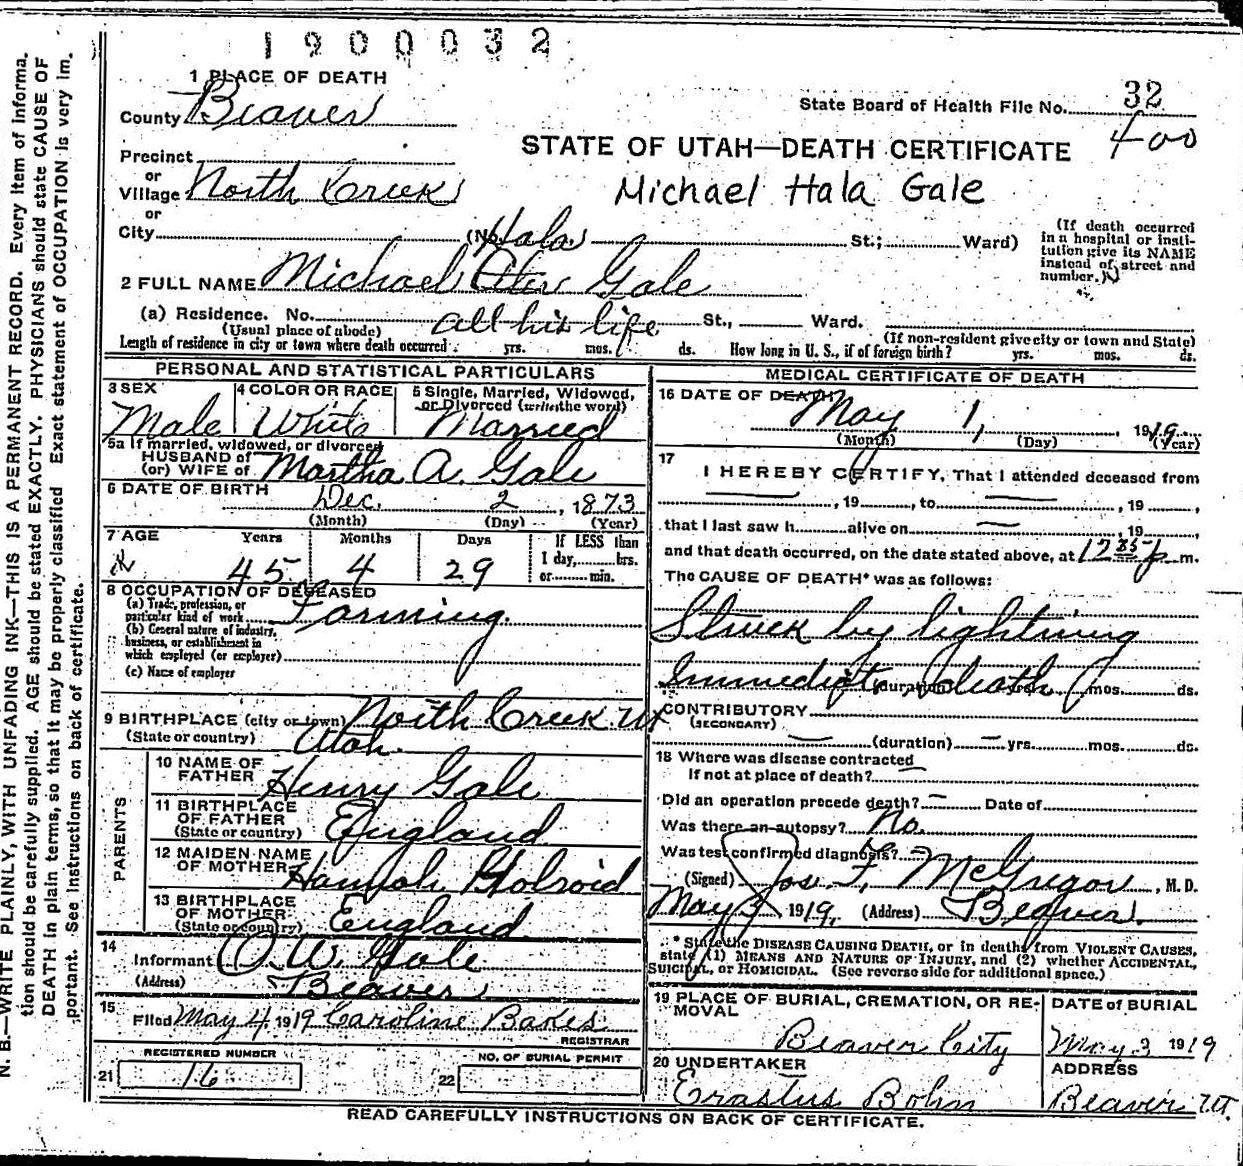 1900032
1 PLACE OF DEATH
County Beaver
State Board of Health File No. 32
400
STATE OF UTAH—DEATH CERTIFICATE
Precinct
or
Village North Creek
Michael Hala Gale
or
City (No. St.; Ward)
(If death occurred in a hospital or institution give its NAME instead of street and number.)
Hala
2 FULL NAME Michael Gale
(a) Residence. No. all his life St., Ward.
(Usual place of abode) (If non-resident give city or town and State)
Length of residence in city or town where death occurred yrs. mos. ds. How long in U. S., if of foreign birth? yrs. mos. ds.
PERSONAL AND STATISTICAL PARTICULARS
3 SEX Male
4 COLOR OR RACE White
5 Single, Married, Widowed, or Divorced (write the word) Married
5a If married, widowed, or divorced
HUSBAND of
(or) WIFE of Martha A. Gale
6 DATE OF BIRTH Dec. 2, 1873
(Month) (Day) (Year)
7 AGE Years Months Days If LESS than
45 4 29 1 day, hrs.
or min.
8 OCCUPATION OF DECEASED
(a) Trade, profession, or
particular kind of work Farming.
(b) General nature of industry,
business, or establishment in
which employed (or employer)
(c) Name of employer
9 BIRTHPLACE (city or town) North Creek Ut
(State or country) Utah.
PARENTS
10 NAME OF FATHER Henry Gale
11 BIRTHPLACE OF FATHER (State or country) England
12 MAIDEN NAME OF MOTHER Hannah Holroid
13 BIRTHPLACE OF MOTHER (State or country) England
14
Informant O. W. Gale
(Address) Beaver
15
Filed May 4 1919 Caroline Bakes
REGISTRAR
REGISTERED NUMBER NO. OF BURIAL PERMIT
21 16 22
MEDICAL CERTIFICATE OF DEATH
16 DATE OF DEATH?
May 1, 1919
(Month) (Day) (Year)
17
I HEREBY CERTIFY, That I attended deceased from
, 19 , to , 19 ,
that I last saw h alive on , 19
and that death occurred, on the date stated above, at 12 35 p m.
The CAUSE OF DEATH* was as follows:
Struck by lightning
Immediate death
(duration) mos. ds.
CONTRIBUTORY
(SECONDARY)
(duration) yrs. mos. ds.
18 Where was disease contracted
If not at place of death?
Did an operation precede death? Date of
Was there an autopsy? No.
Was test confirmed diagnosis?
(Signed) Jos F. McGregor, M. D.
May 3 1919, (Address) Beaver.
* State the DISEASE CAUSING DEATH, or in deaths from VIOLENT CAUSES,
state (1) MEANS AND NATURE OF INJURY, and (2) whether ACCIDENTAL,
SUICIDAL, OR HOMICIDAL. (See reverse side for additional space.)
19 PLACE OF BURIAL, CREMATION, OR REMOVAL DATE of BURIAL
Beaver City May 3 1919
20 UNDERTAKER ADDRESS
Erastus Bohn Beaver Ut.
READ CAREFULLY INSTRUCTIONS ON BACK OF CERTIFICATE.
N. B.—WRITE PLAINLY, WITH UNFADING INK—THIS IS A PERMANENT RECORD. Every item of informa-
tion should be carefully supplied. AGE should be stated EXACTLY. PHYSICIANS should state CAUSE OF
DEATH in plain terms, so that it may be properly classified Exact statement of OCCUPATION is very im-
portant. See instructions on back of certificate.